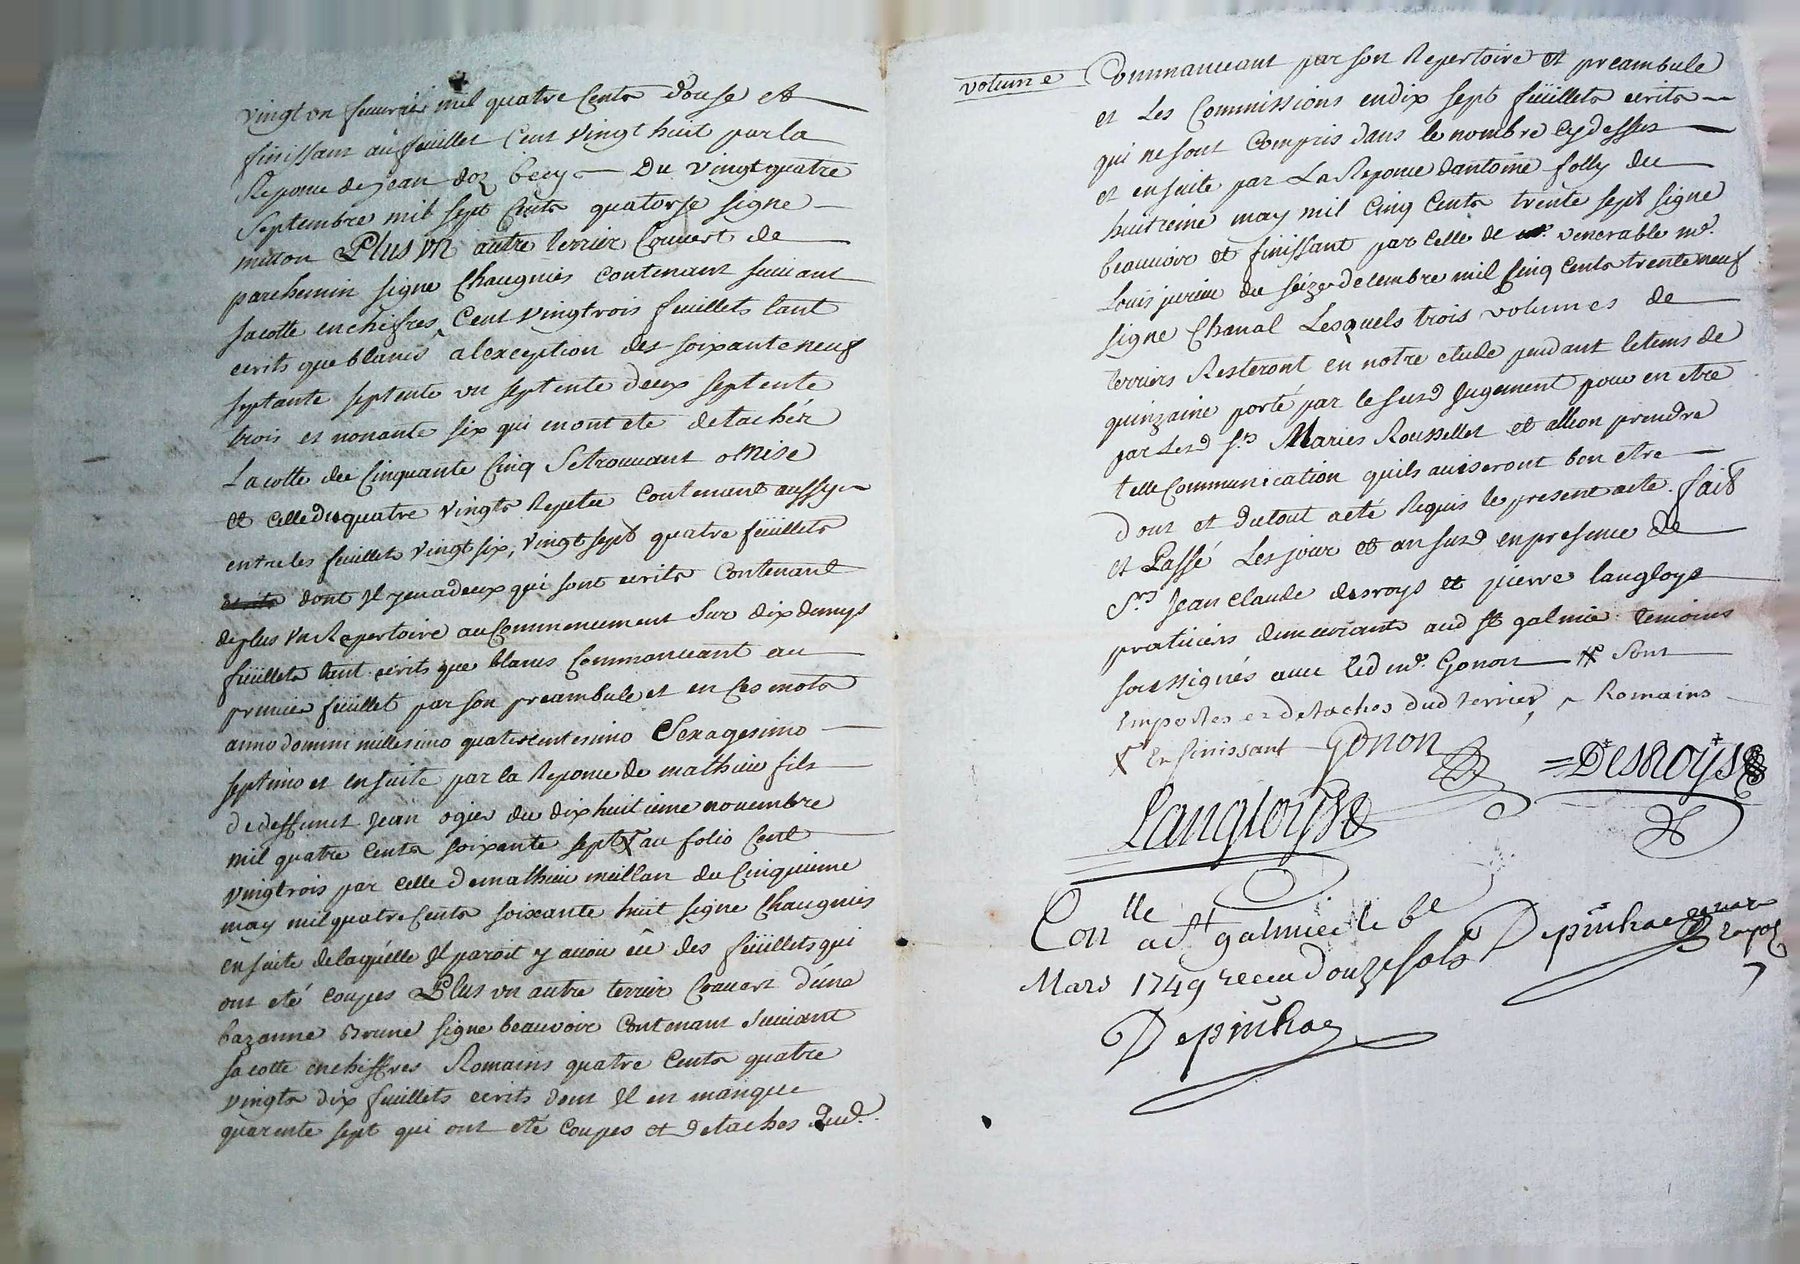 vingt un feuvrié mil quatre Cents douse et
finissant au feuillet Cent vingt huit par la
Reponce de jean doz becy Du vingt quatre
Septembre mil sept Cents quatorse signe
mitton Plus un autre terrier Couvert de
parchemin signe Chaugnies contenant suivant
sa cotte en chiffres Cent vingt trois feuillets tant
ecrits que blancs a lexception des soixante neuf
septante septente un septente deux septente
trois et nonante six qui en ont ete detachéz
La cotte de Cinquante Cinq Se trouvant omise
et celle du quatre vingts Repetee contenant aussy
entre les feuillets vingt six, vingt sept quatre feüillets
dont Il y en a deux qui sont ecrits Contenant
de plus un Repertoire au Commencement sur dix demys
feüillets tant ecrits que blancs Commanceant au
premier feüillet par son preambule et en ces mots
anno domini millesimo quatercentesimo Sexagesimo
septimo et en suite par la Reponce de mathieu fils
de deffunct Jean ogier du dix huitieme novembre
mil quatre Cents soixante sept X au folio Cent
vingt rois par celle de mathieu meillan du Cinquieme
may mil quatre Cents soixante huit signe Chaugnies
en suite de laquelle Il paroit y avoir eü des feüillets qui
ont eté coupes Plus un autre terrier Couvert d'une
bazanne Brune signe beauvoir Contenant suivant
sa cotte en chiffres Romains quatre Cents quatre
vingts dix feuillets ecrits dont Il en manque
quarente sept qui ont eté coupes et detaches Dud.
volume Commanceant par son Repertoire et preambule
et Les Commissions en dix sept feüillets ecrits
qui ne sont compris dans le nombre cy dessus
et en suite par La Reponce dantoine folly du
huitieme may mil Cinq Cents trente sept signe
beauvoir et finissant par celle de venerable mr.
Louis jurieu du séize decembre mil Cinq Cents trente neuf
signe Chanal Lesquels trois volumes de
terriers Resteront en notre etude pendant le tems de
quinzaine porté par le susd Jugement pour en etre
par Lesd Srs Maries Roussellet et alleon prendre
telle Communication quils aviseront bon etre
Dont et du tout acté Requis le present acte. fait
et Passé Les jour et an susd en presence de
Srs Jean Claude desroys et pierre langloys
praticiens demeurants aud St galmier temoins
soussignés avec led mr. Gonon # sont
emportes et detaches dud terrier, Romains
X en finissant Gonon
= Desroys
Langloys
Conlle a St galmier le 6e
Mars 1749 receu douze sols
Depinhac